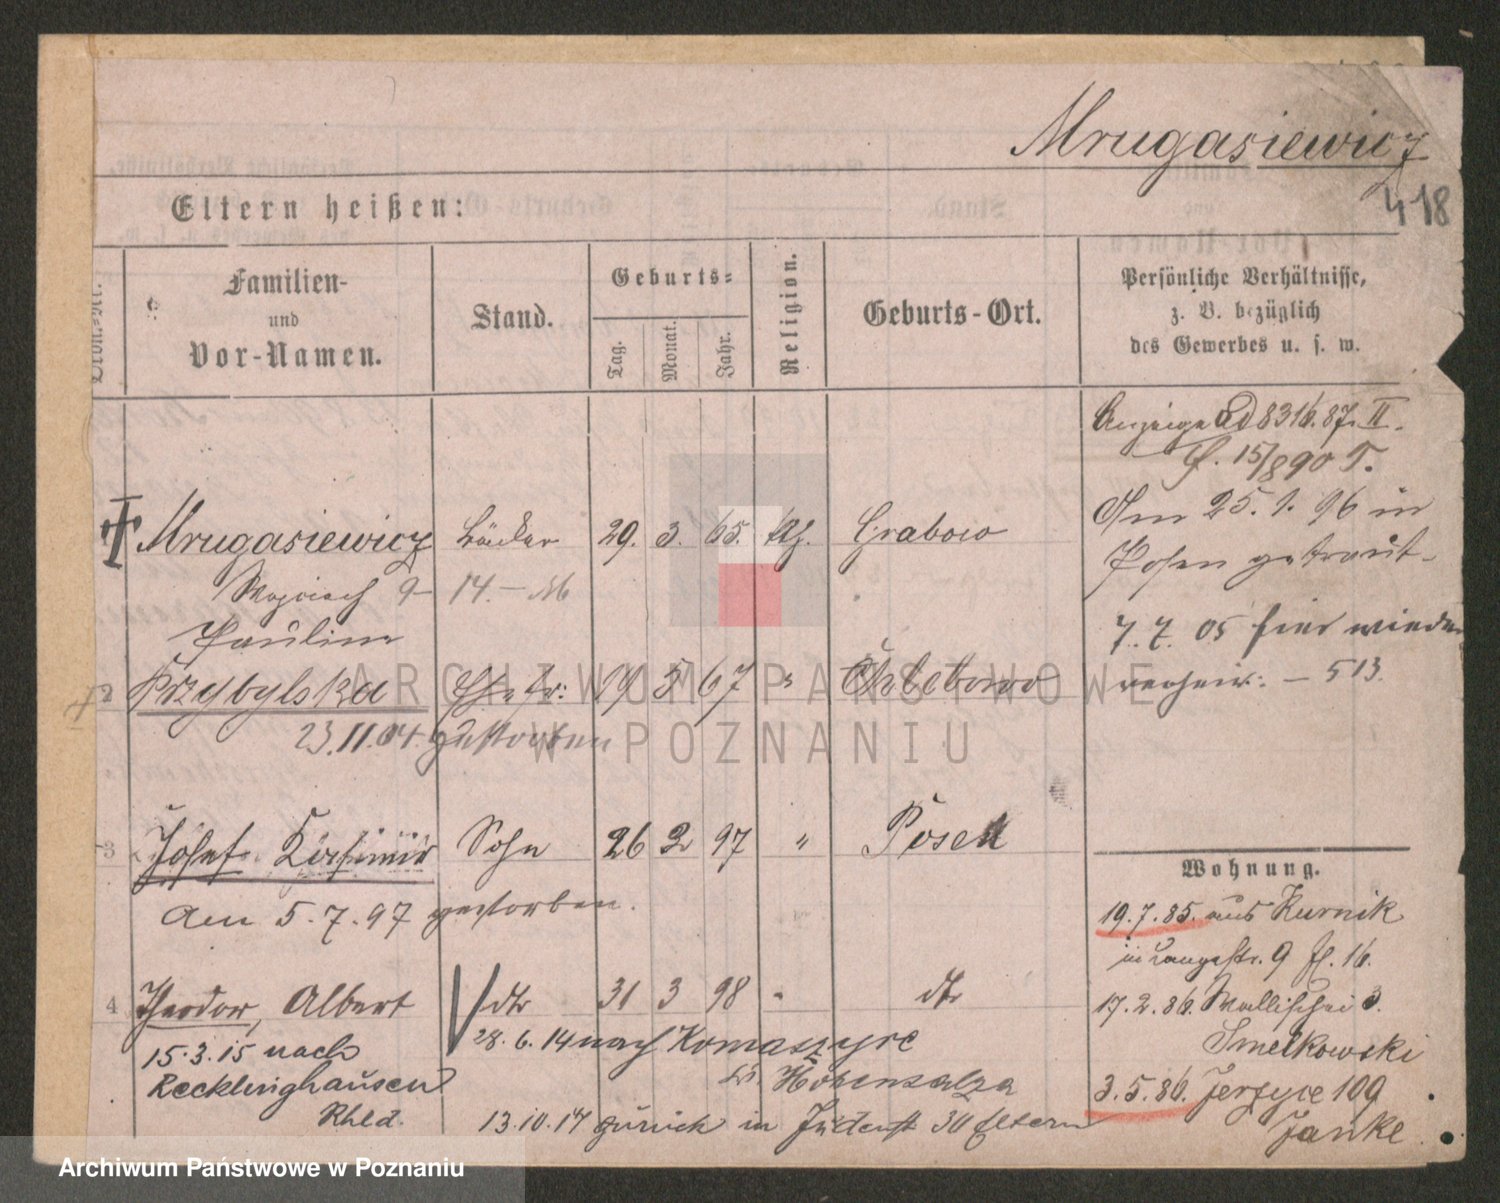 Mrugasiewicz
418
Eltern heißen:
Ordn.-Nr.
Familien-
und
Vor-Namen.
Stand.
Geburts-
Tag.
Monat.
Jahr.
Religion.
Geburts-Ort.
Persönliche Verhältnisse,
z. B. bezüglich
des Gewerbes u. s. w.
Anzeige 8316.87. II.
15/8 90 T.
Am 25. 1. 96 in
Posen getraut
Mrugasiewicz Bäcker 29. 3. 65. Grabow
14. – M
Pauline
7. 7. 05 hier wieder
verheir: – 513.
2 Przybylska Ehefr: 19 5 67 " Chlebowo
23.11.04. gestorben
3 Josef Kasimir Sohn 26 2 97 " Posen
am 5.7.97 gestorben.
Wohnung.
19.7.85. aus Kurnik
in Langestr. 9 16.
4 Theodor, Albert dto 31 3 98 " dto
17.2.86. Wallischei 3.
Smelkowski
28.6.14 nach Komaszyce
15.3.15 nach
Kr. Hohensalza
Recklinghausen
3.5.86. Jerzyce 109
Rhld.
13.10.14 zurück in 30 Eltern
Janke
ARCHIWUM PAŃSTWOWE
W POZNANIU
Archiwum Państwowe w Poznaniu